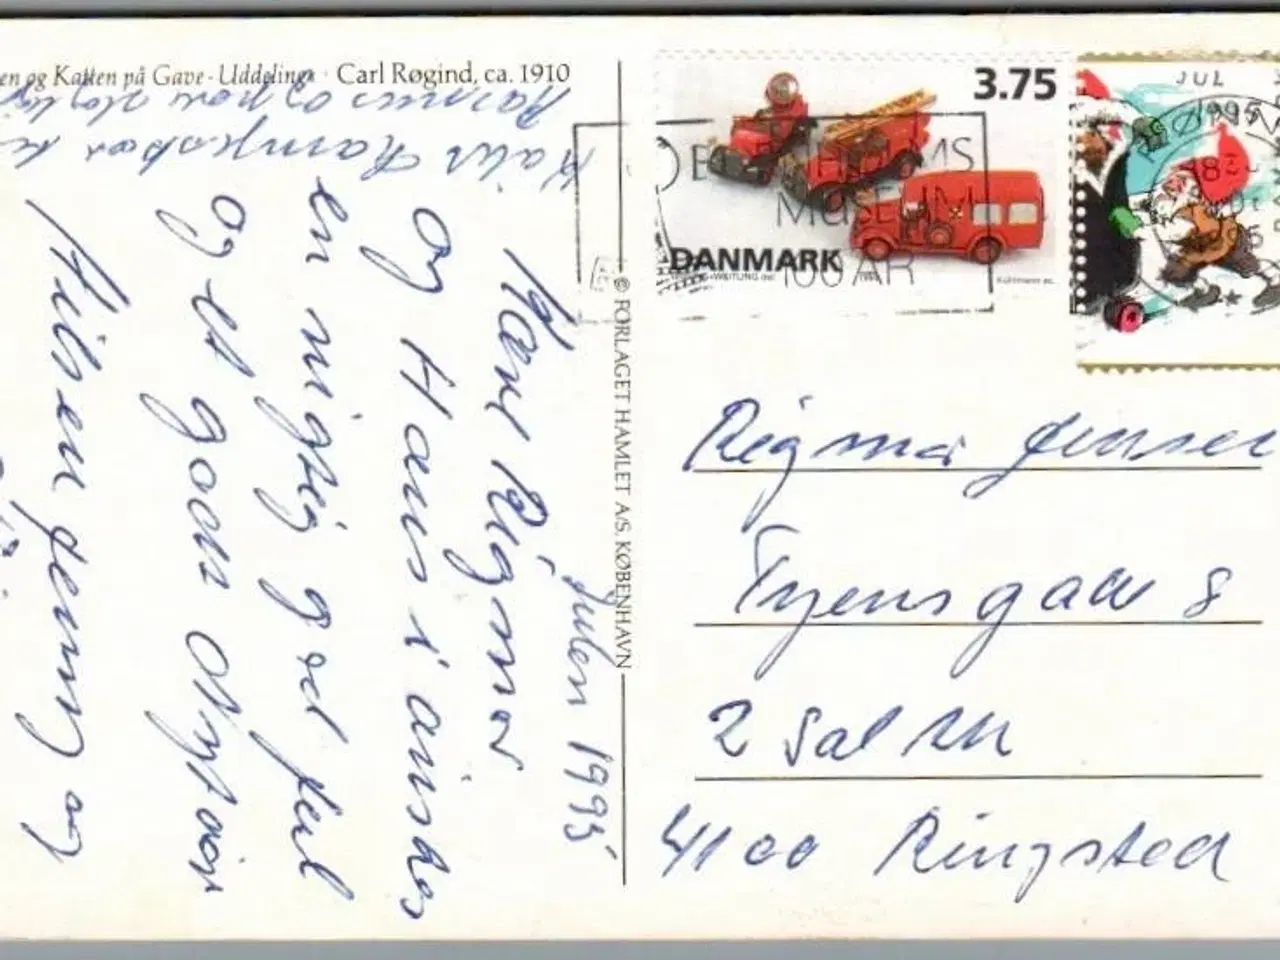 en og Katten på Gave-Uddeling · Carl Røgind, ca. 1910
Julen 1995
Kære Rigmor
og Hans i ønskes
en rigtig god jul
og et godt Nytår
Hilsen Jenny og
© FORLAGET HAMLET A/S, KØBENHAVN
3.75
DANMARK
HOLMS
MUSEUM
100 ÅR
JUL
1995
Rigmor Jensen
Fyensgade 8
2 Sal
4100 Ringsted